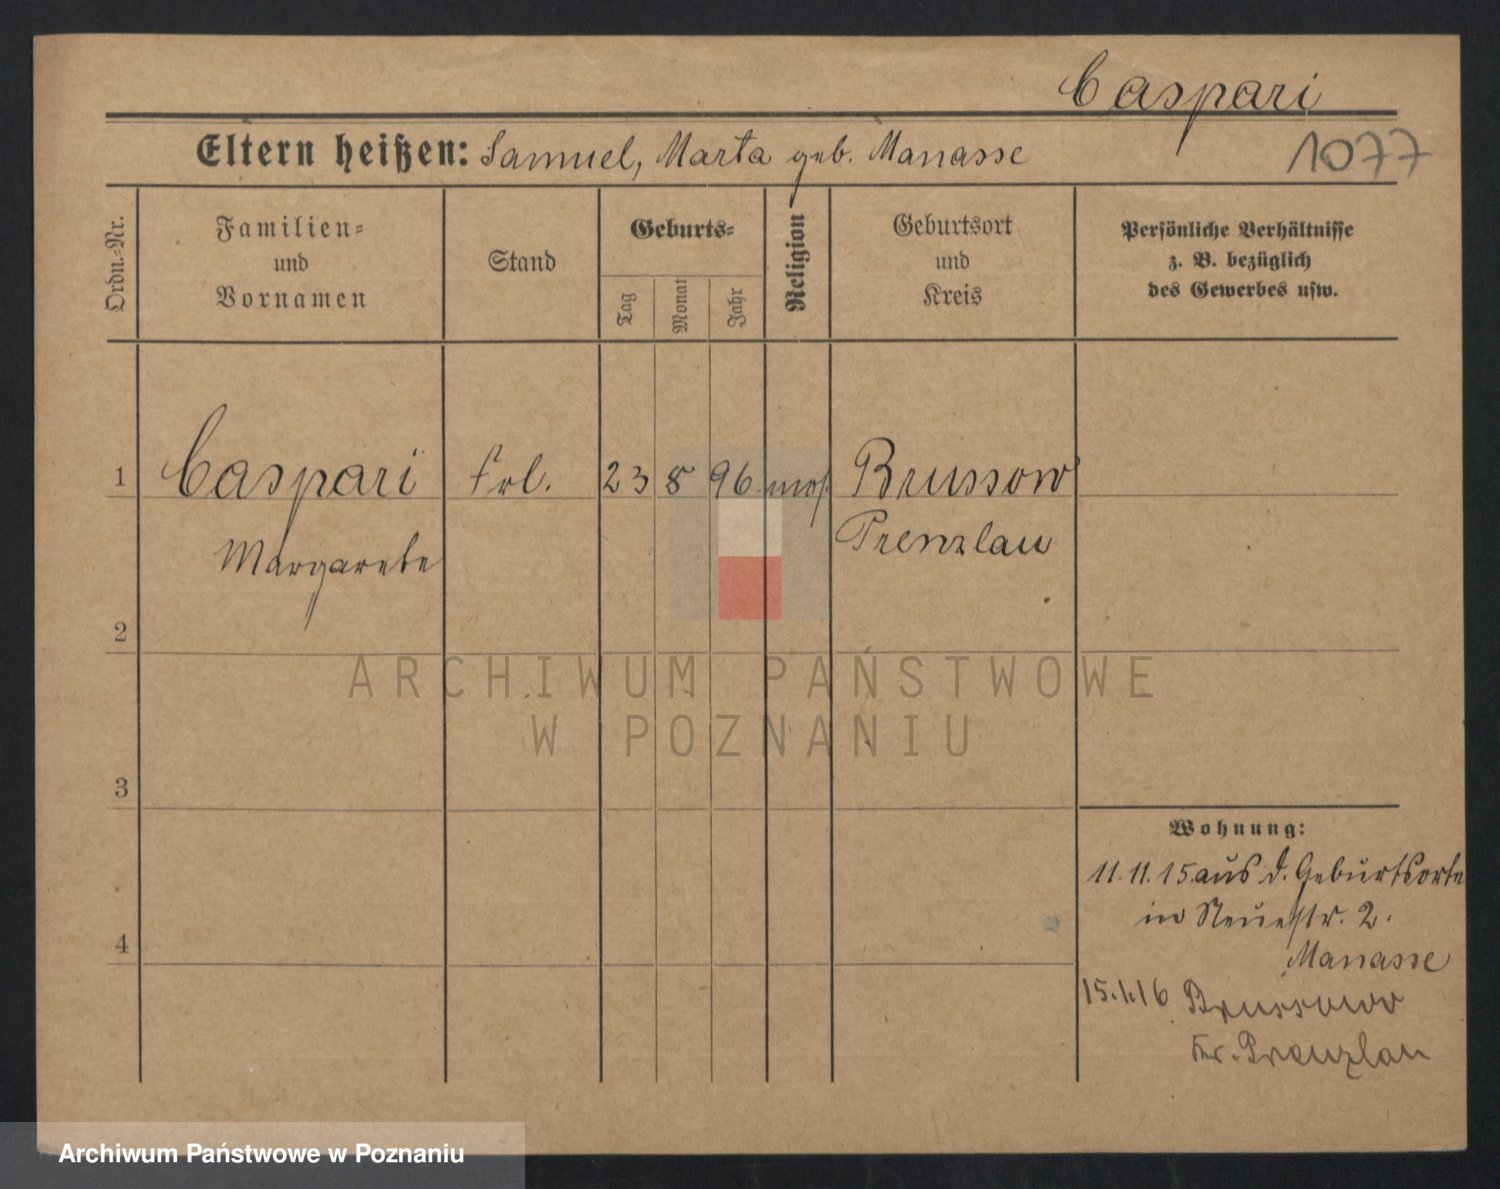 Caspari
Eltern heißen: Samuel, Marta geb. Manasse
1077
Ordn.-Nr.
Familien- und Vornamen
Stand
Geburts-
Tag
Monat
Jahr
Religion
Geburtsort und Kreis
Persönliche Verhältnisse
z. B. bezüglich
des Gewerbes usw.
1 Caspari Frl. 23 8 96 mos. Brussow
Margarete Prenzlau
2
3
4
Wohnung:
11.11.15. aus d. Geburtsorte
in Neuestr. 2.
Manasse
15.1.16 Brussow
Kr. Prenzlau
ARCHIWUM PAŃSTWOWE
W POZNANIU
Archiwum Państwowe w Poznaniu